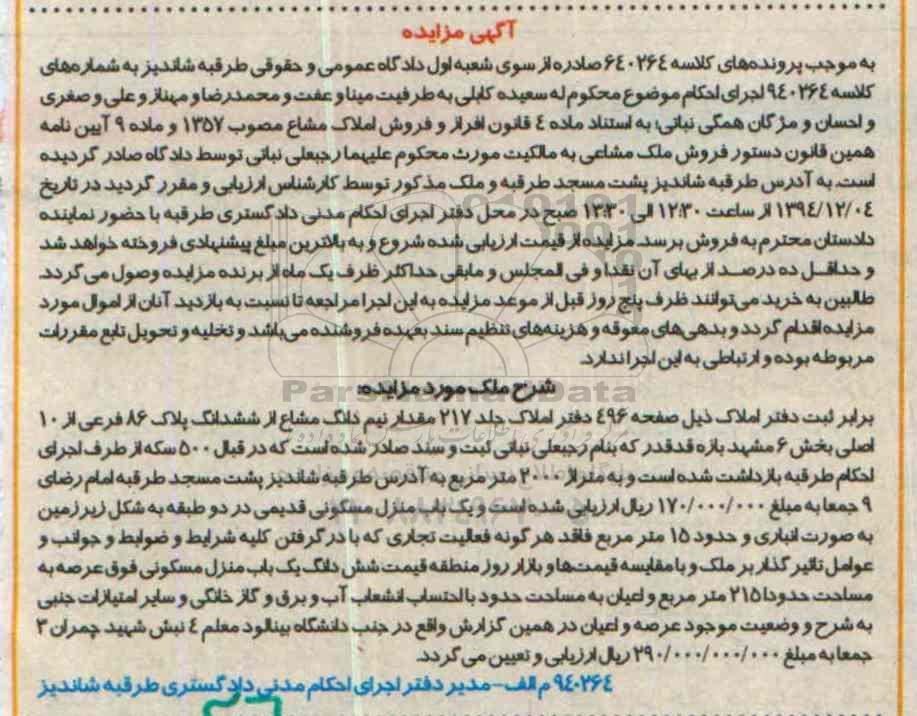 آگهی مزایده
به موجب پرونده‌های کلاسه ۶۴۰۲۶۴ صادره از سوی شعبه اول دادگاه عمومی و حقوقی طرقبه شاندیز به شماره‌های
کلاسه ۹۴۰۲۶۴ اجرای احکام موضوع محکوم له سعیده کابلی به طرفیت مینا و عفت و محمدرضا و مهناز و علی و صغری
و احسان و مژگان همگی نباتی؛ به استناد ماده ۴ قانون افراز و فروش املاک مشاع مصوب ۱۳۵۷ و ماده ۹ آیین نامه
همین قانون دستور فروش ملک مشاعی به مالکیت مورث محکوم علیهما رجبعلی نباتی توسط دادگاه صادر گردیده
است. به آدرس طرقبه شاندیز پشت مسجد طرقبه و ملک مذکور توسط کارشناس ارزیابی و مقرر گردید در تاریخ
۱۳۹۴/۱۲/۰۴ از ساعت ۱۲:۳۰ الی ۱۳:۳۰ صبح در محل دفتر اجرای احکام مدنی دادگستری طرقبه با حضور نماینده
دادستان محترم به فروش برسد. مزایده از قیمت ارزیابی شده شروع و به بالاترین مبلغ پیشنهادی فروخته خواهد شد
و حداقل ده درصد از بهای آن نقدا و فی المجلس و مابقی حداکثر ظرف یک ماه از برنده مزایده وصول می گردد.
طالبین به خرید می‌توانند ظرف پنج روز قبل از موعد مزایده به این اجرا مراجعه تا نسبت به بازدید آنان از اموال مورد
مزایده اقدام گردد و بدهی های معوقه و هزینه‌های تنظیم سند بعهده فروشنده می‌باشد و تخلیه و تحویل تابع مقررات
مربوطه بوده و ارتباطی به این اجرا ندارد.
شرح ملک مورد مزایده:
برابر ثبت دفتر املاک ذیل صفحه ۴۹۶ دفتر املاک جلد ۲۱۷ مقدار نیم دانگ مشاع از ششدانگ پلاک ۸۶ فرعی از ۱۰
اصلی بخش ۶ مشهد بازه قدقدر که بنام رجبعلی نباتی ثبت و سند صادر شده است که در قبال ۵۰۰ سکه از طرف اجرای
احکام طرقبه بازداشت شده است و به متراژ ۲۰۰۰ متر مربع به آدرس طرقبه شاندیز پشت مسجد طرقبه امام رضای
۹ جمعا به مبلغ ۱۷۰/۰۰۰/۰۰۰ ریال ارزیابی شده است و یک باب منزل مسکونی قدیمی در دو طبقه به شکل زیرزمین
به صورت انباری و حدود ۱۵ متر مربع فاقد هر گونه فعالیت تجاری که با در گرفتن کلیه شرایط و ضوابط و جوانب و
عوامل تاثیر گذار بر ملک و با مقایسه قیمت‌ها و بازار روز منطقه قیمت شش دانگ یک باب منزل مسکونی فوق عرصه به
مساحت حدودا ۲۱۵ متر مربع و اعیان به مساحت حدود با احتساب انشعاب آب و برق و گاز خانگی و سایر امتیازات جنبی
به شرح و وضعیت موجود عرصه و اعیان در همین گزارش واقع در جنب دانشگاه بینالود معلم ۴ نبش شهید چمران ۳
جمعا به مبلغ ۲۹۰/۰۰۰/۰۰۰/۰۰۰ ریال ارزیابی و تعیین می گردد.
۹۴۰۲۶۴ م الف-مدیر دفتر اجرای احکام مدنی دادگستری طرقبه شاندیز